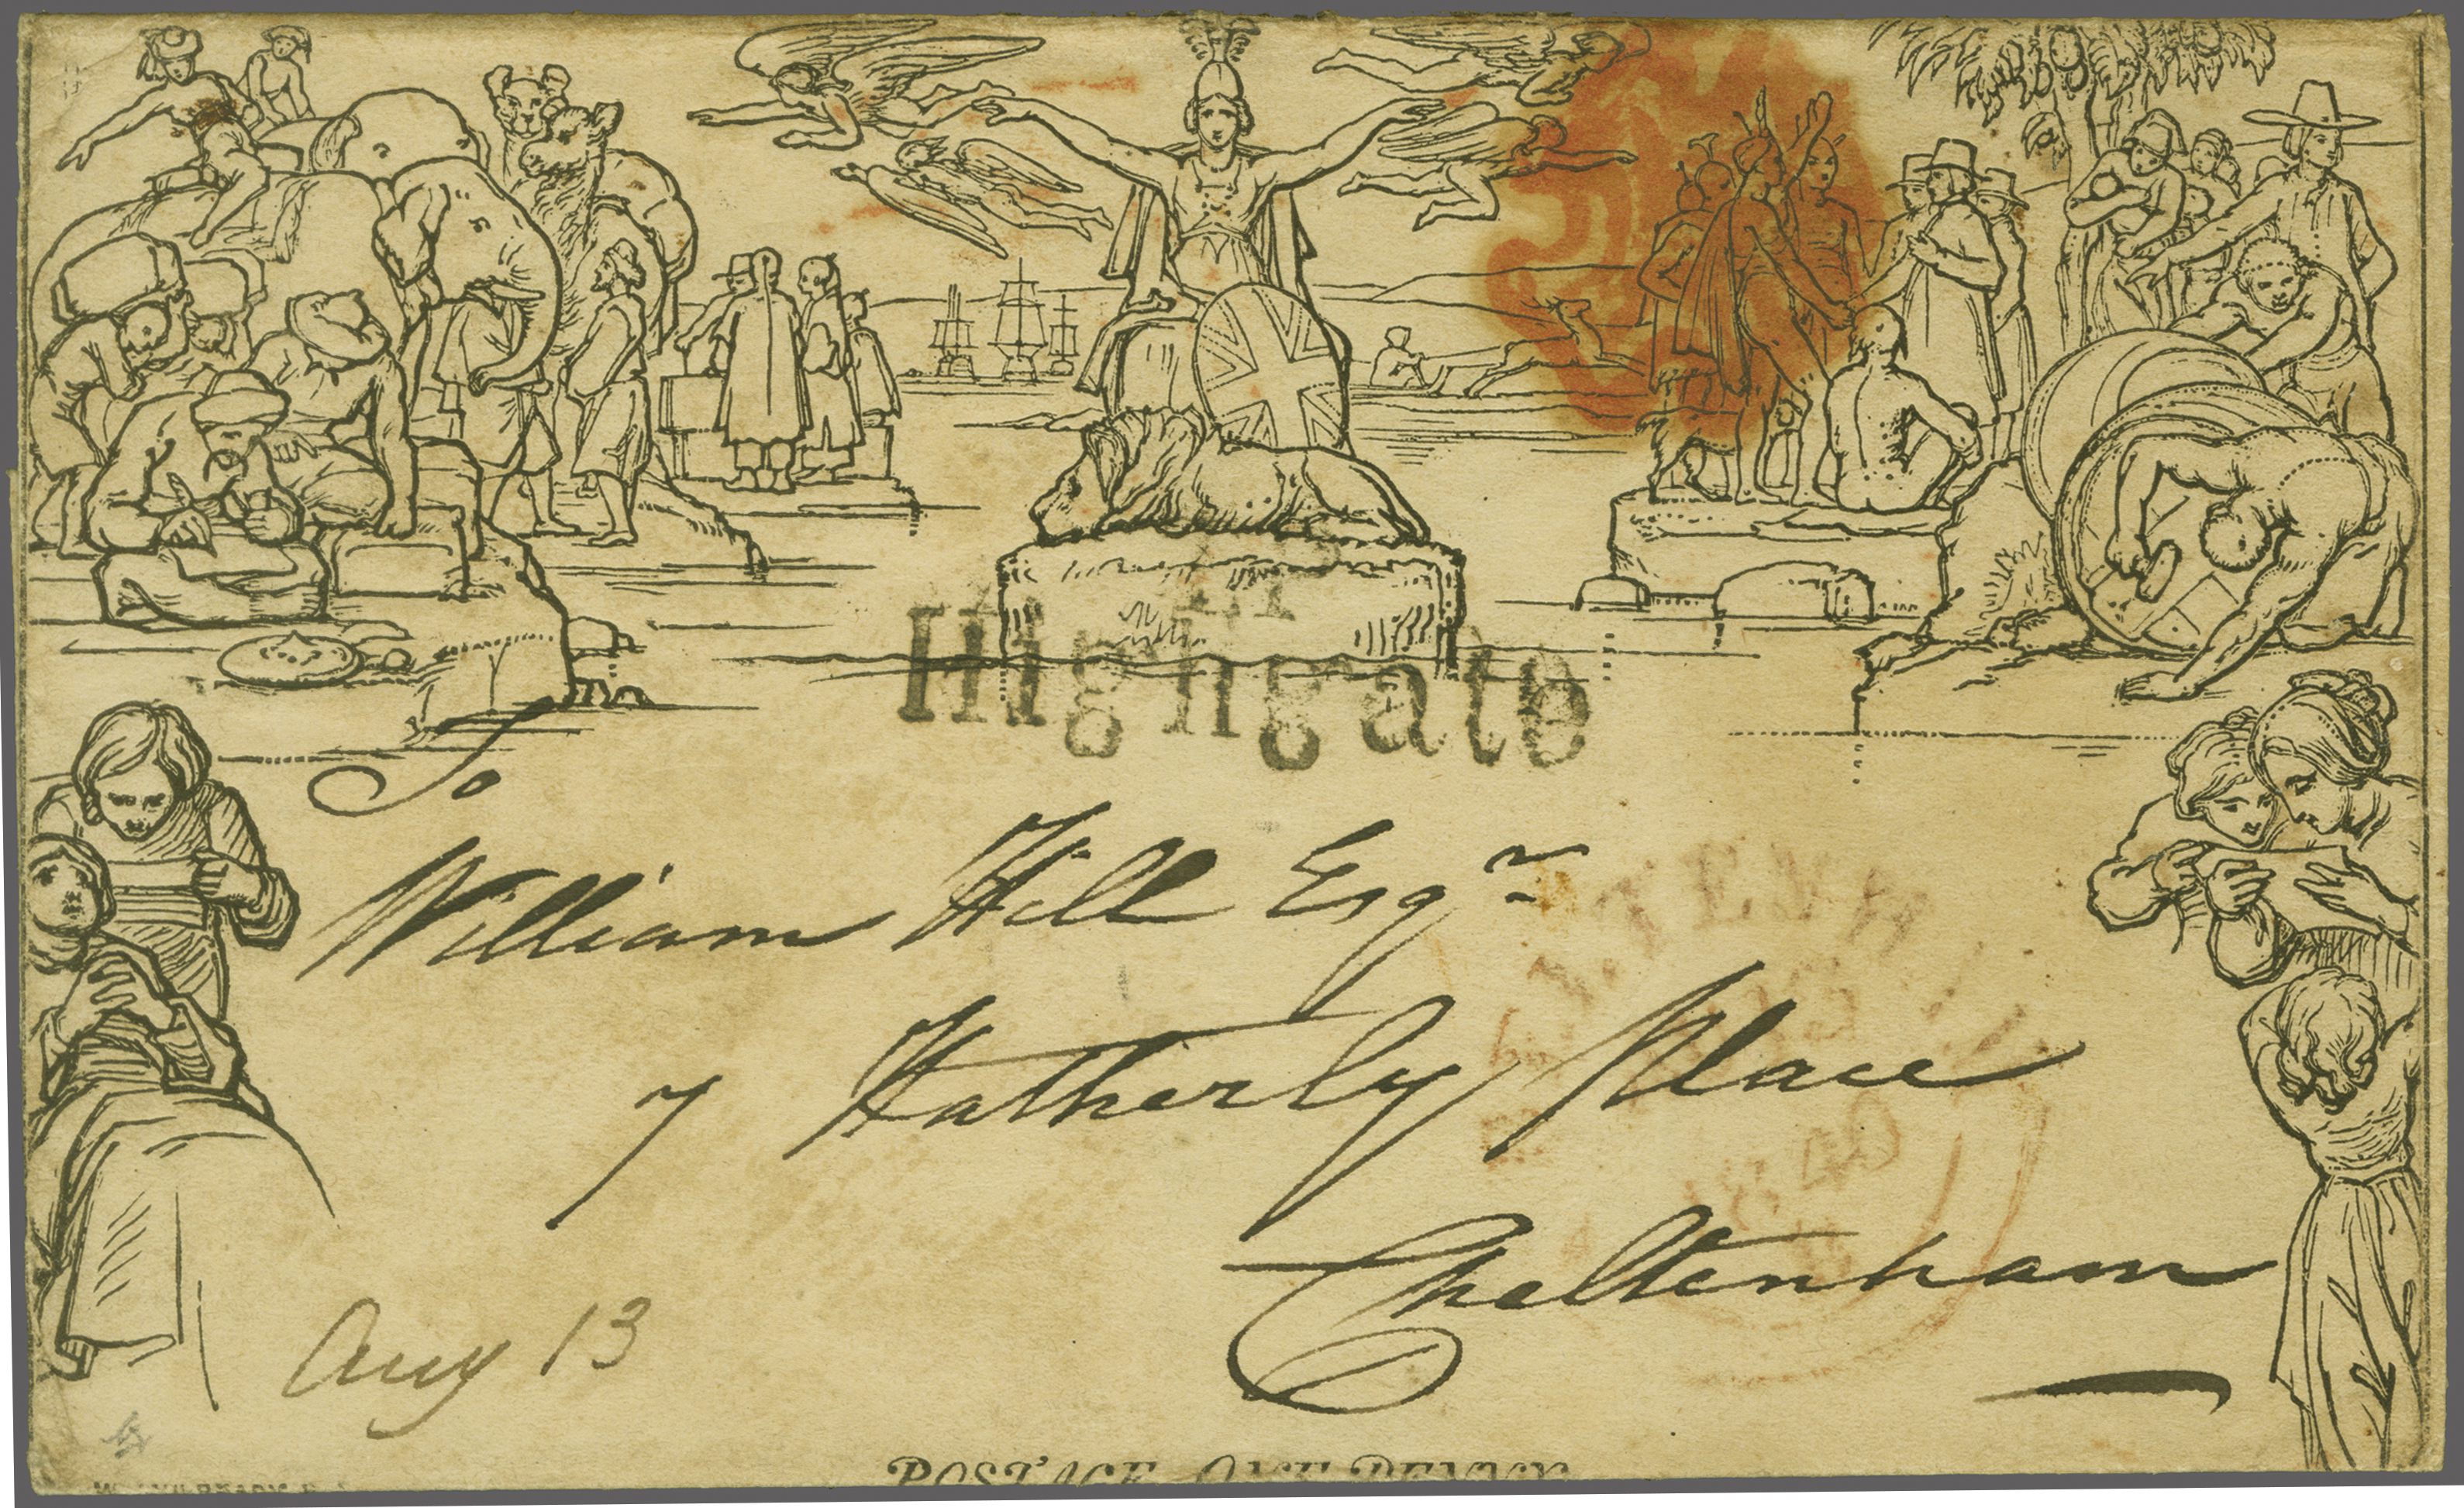 Highgate
To
William Hill Esqr
7 Hatherly Place
Cheltenham
Aug 13
POSTAGE ONE PENNY